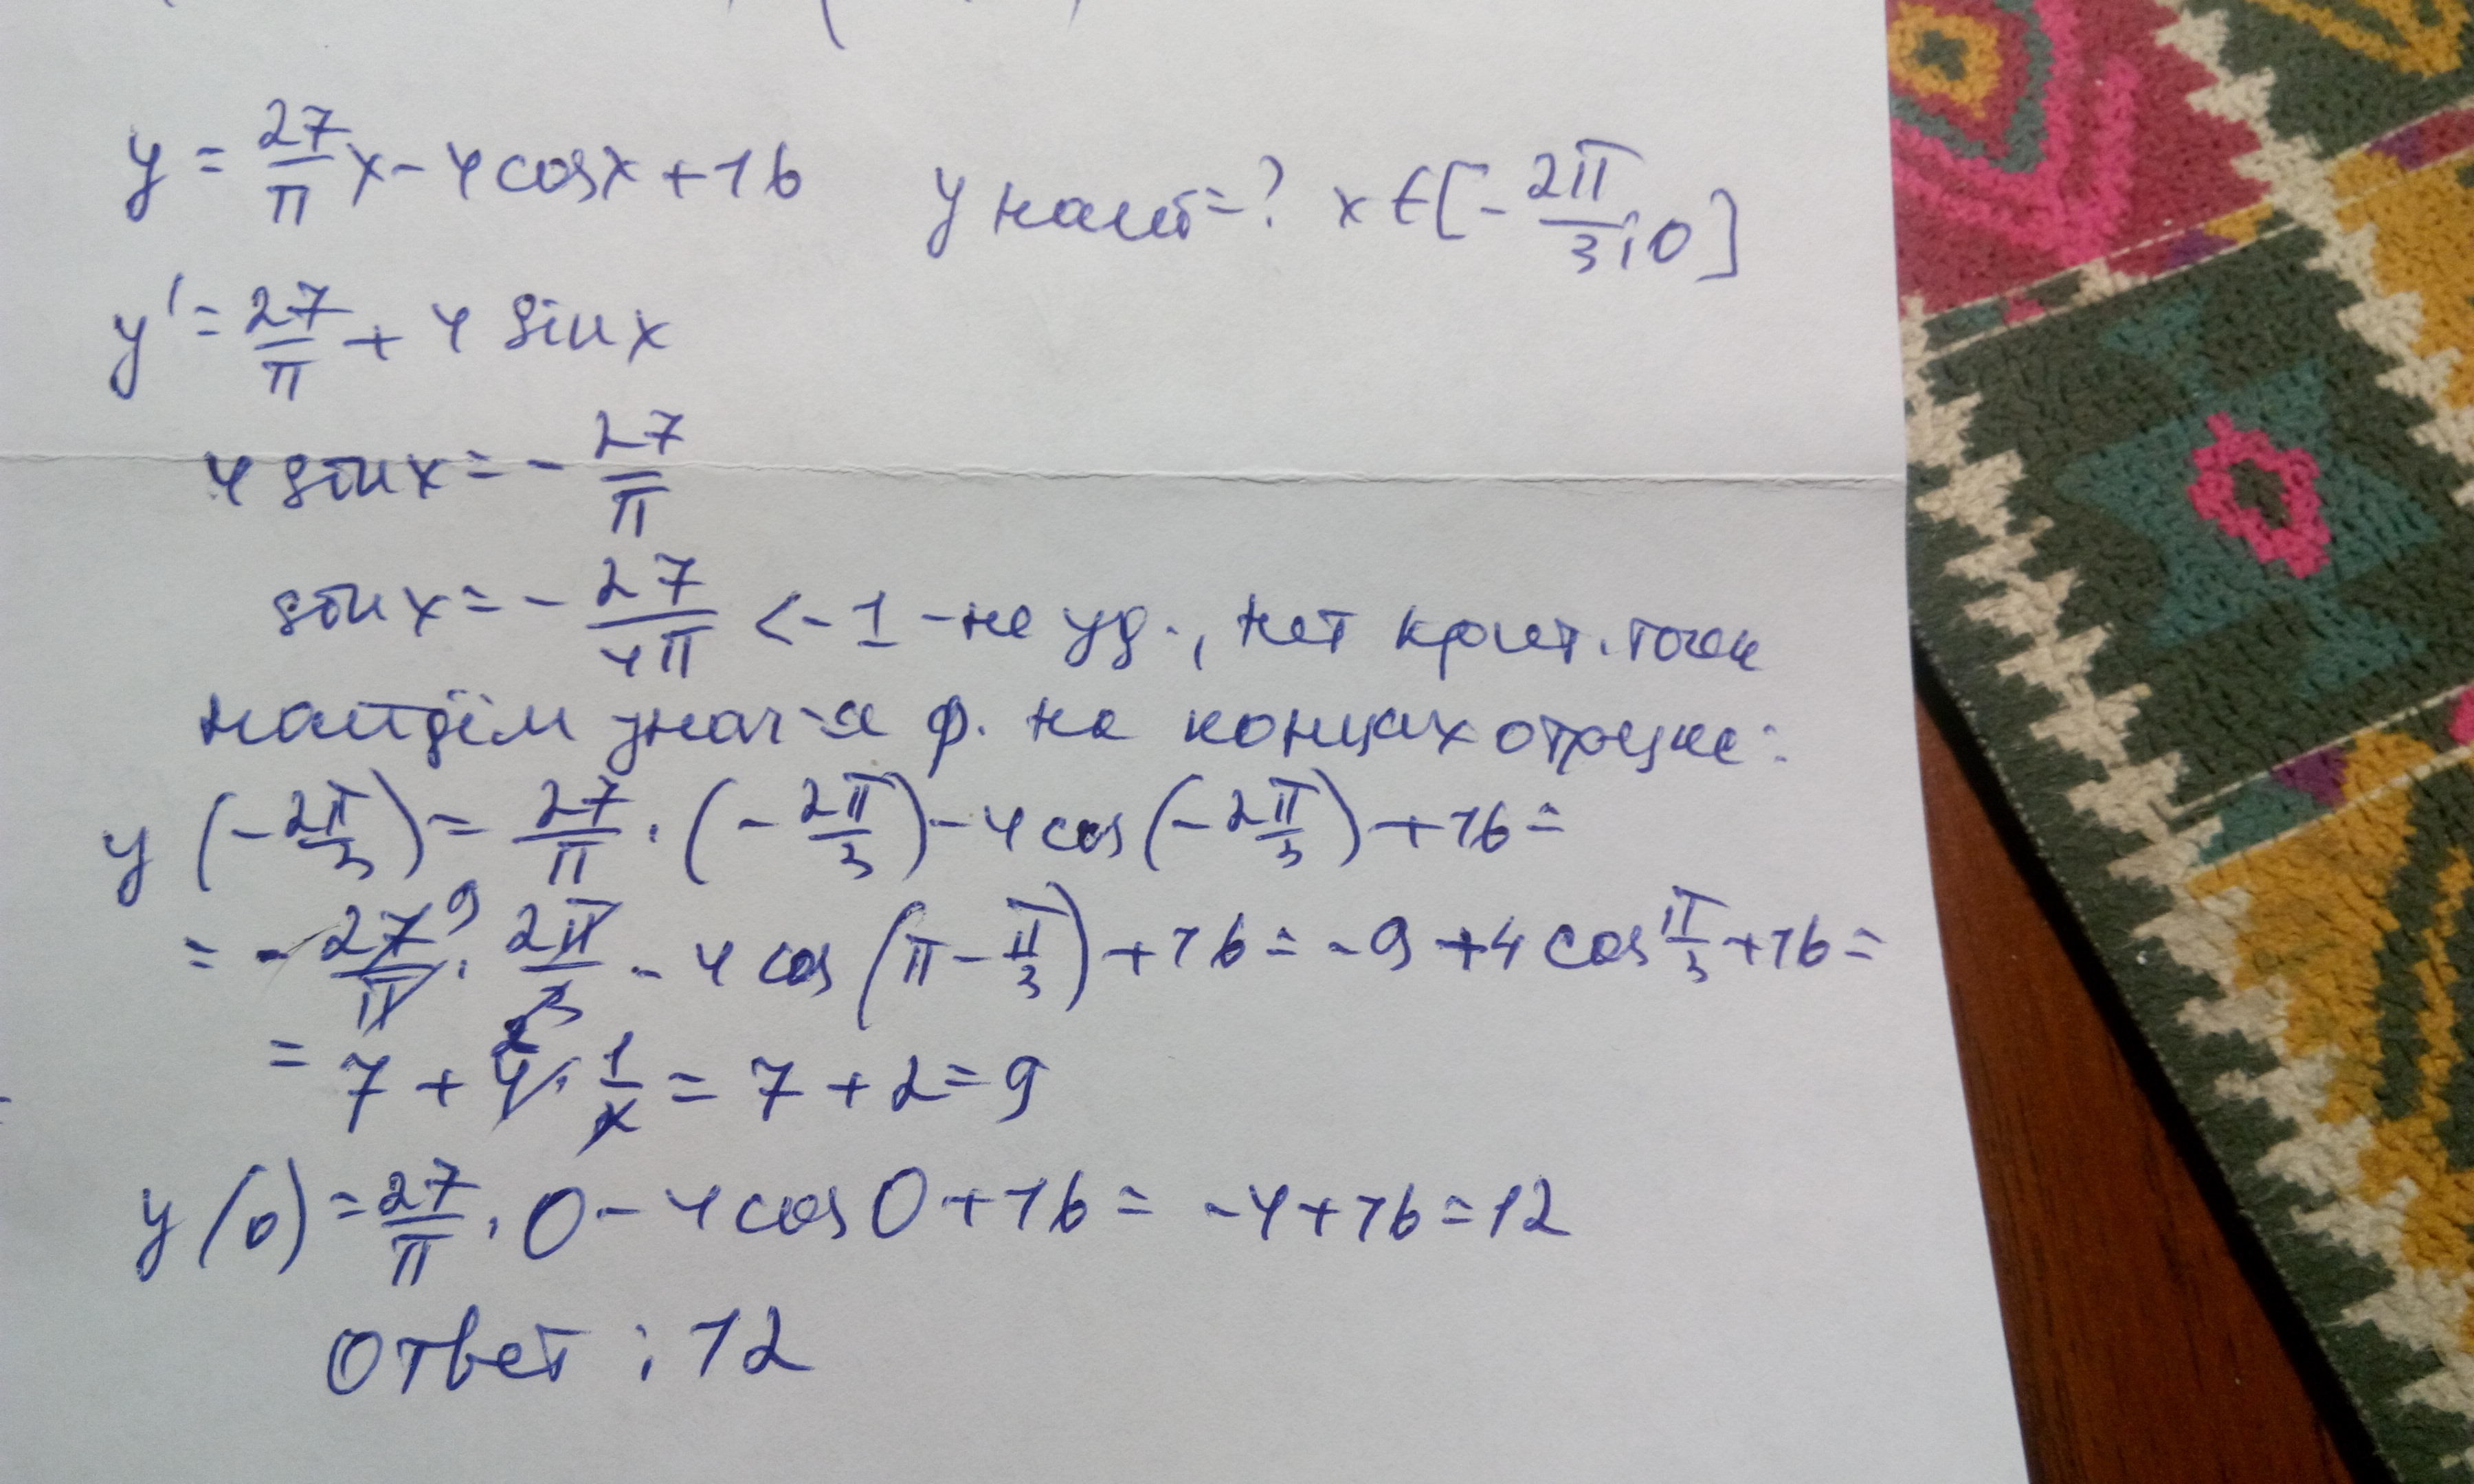 y = 27/π x - 4 cos x + 16   y наиб = ? x ∈ [- 2π/3; 0]
y' = 27/π + 4 sin x
4 sin x = - 27/π
sin x = - 27/4π < -1 - не уд., нет крит. точек
найдём знач-я ф. на концах отрезка:
y (- 2π/3) = 27/π · (- 2π/3) - 4 cos (- 2π/3) + 16 =
= - 27/π 9 · 2π/3 - 4 cos (π - π/3) + 16 = -9 + 4 cos π/3 + 16 =
= 7 + 4 2 · 1/2 = 7 + 2 = 9
y (0) = 27/π · 0 - 4 cos 0 + 16 = -4 + 16 = 12
Ответ : 12